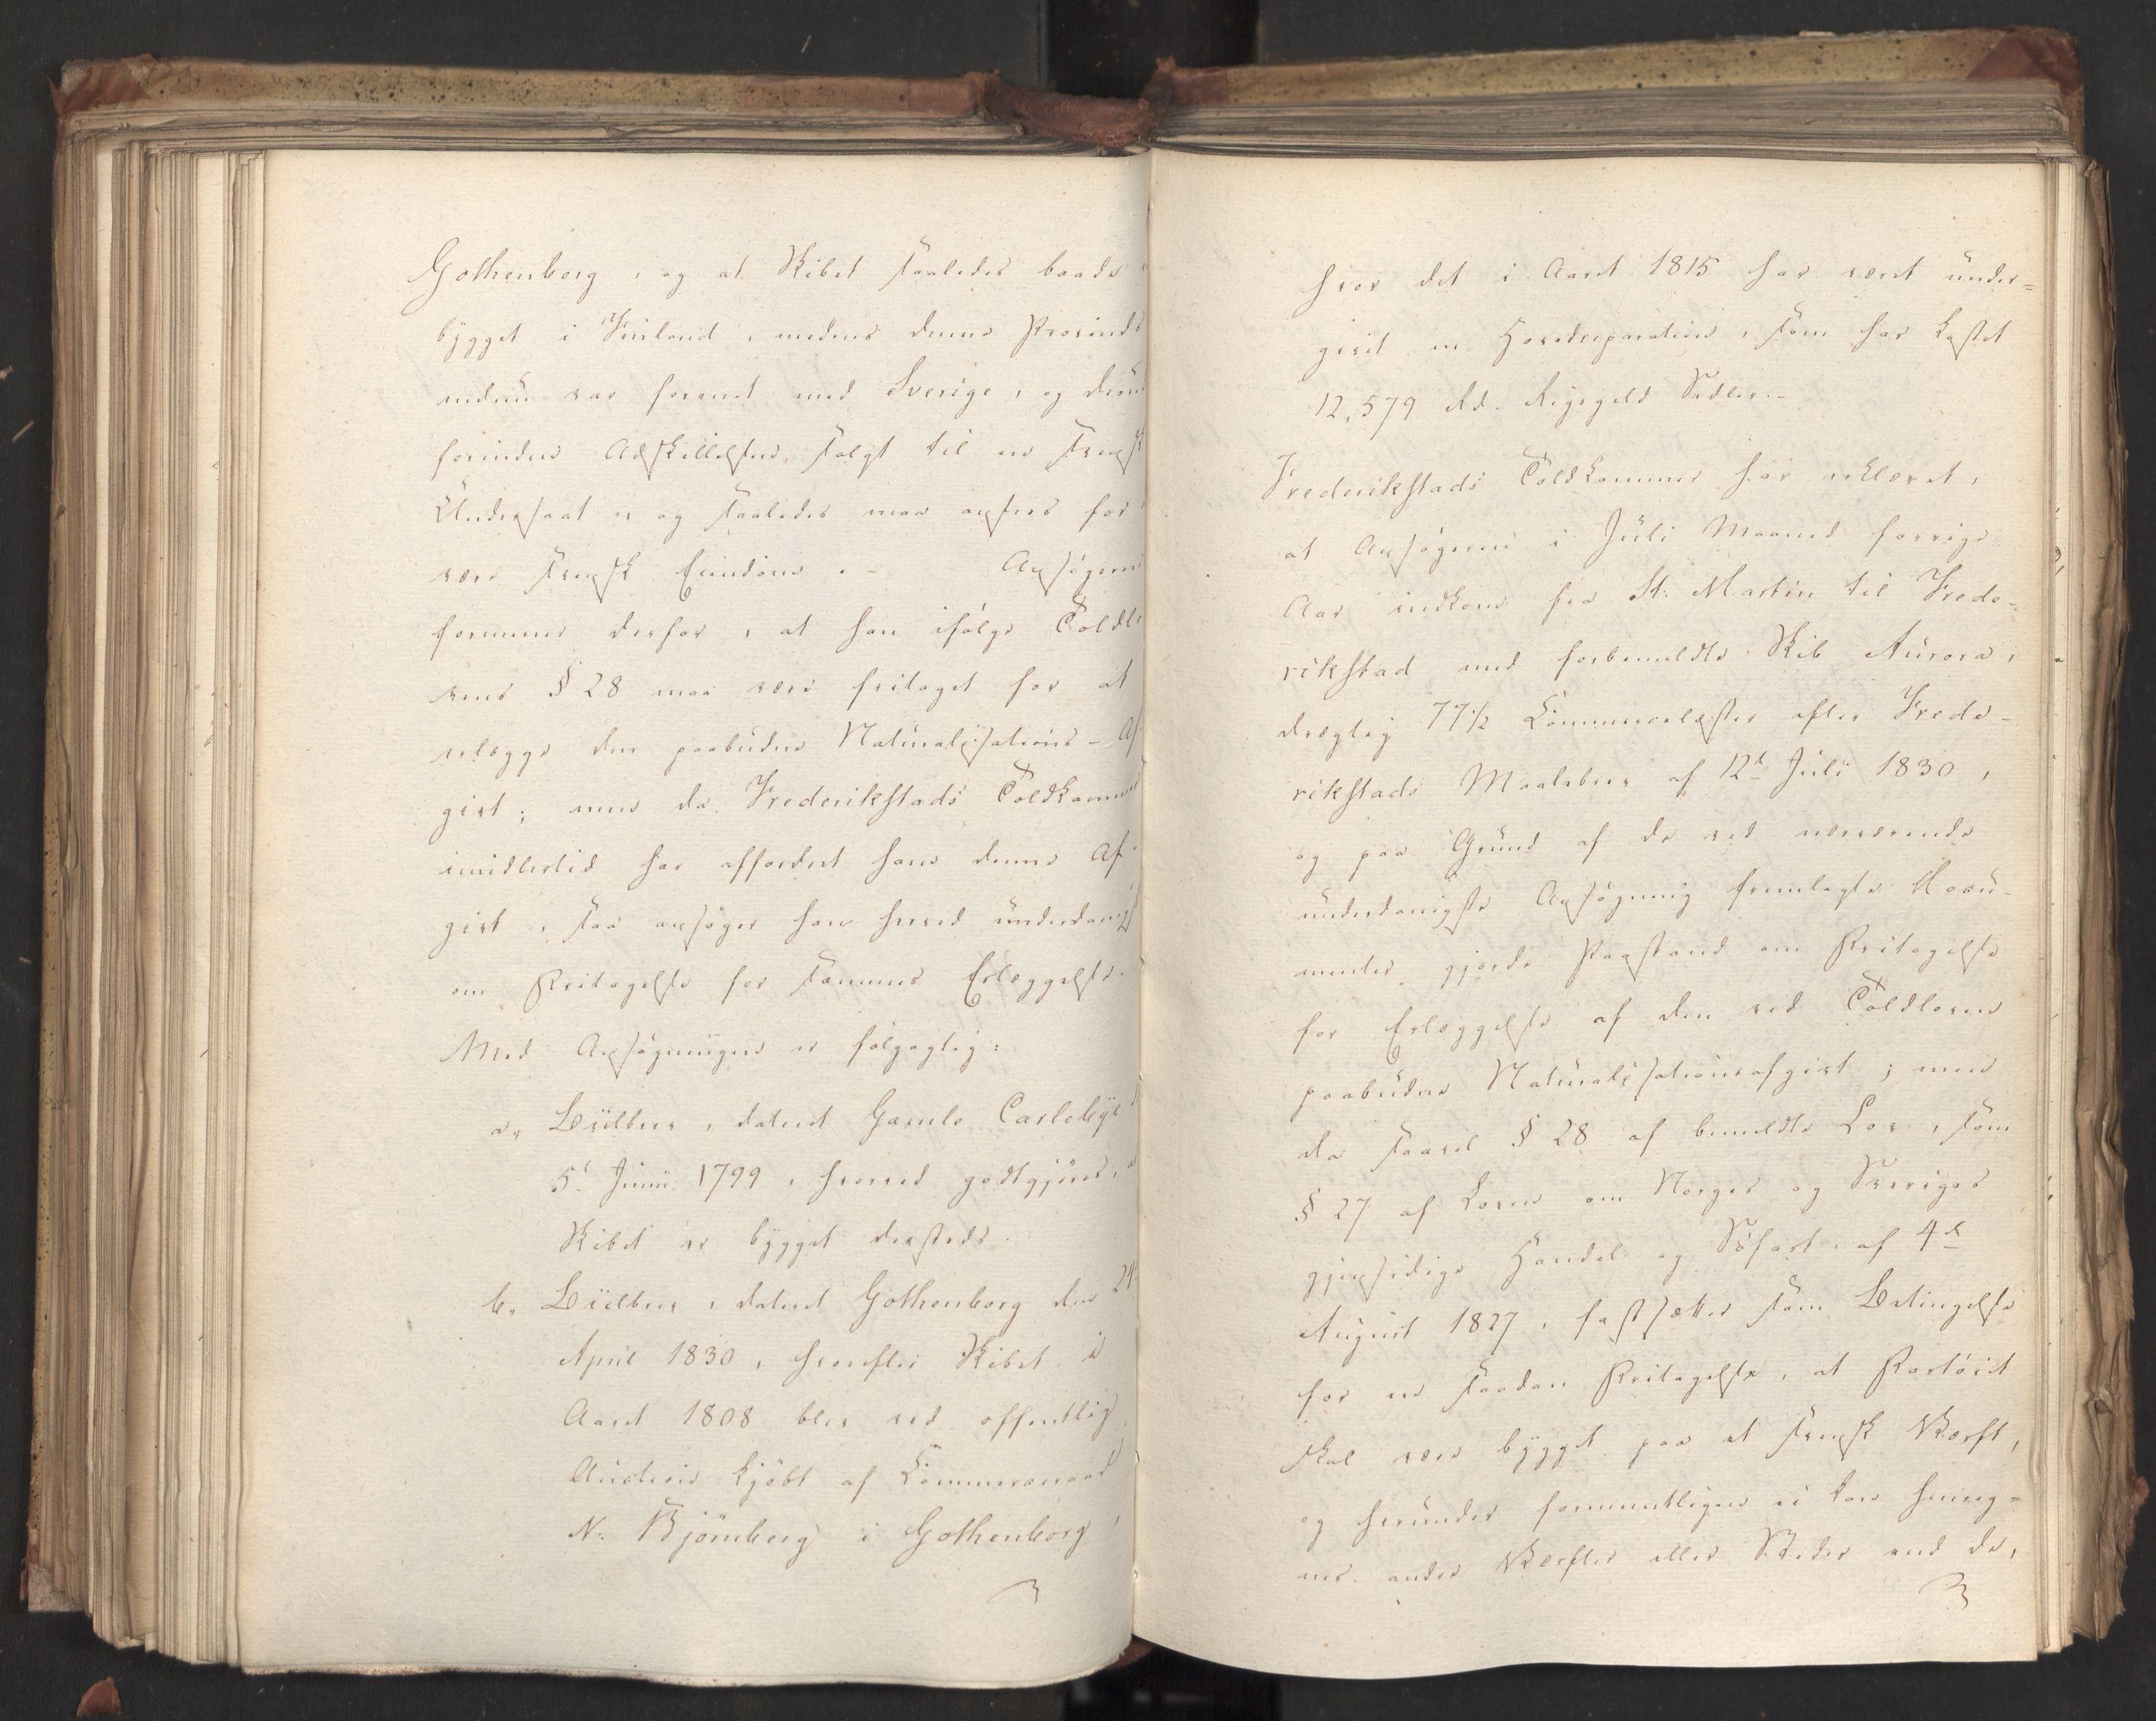 Gothenborg, og at Skibet saaledes baade
bygget i Finland, medens denne Provinds
endnu var forenet med Sverige, og
forinden Adskillelsen, solgt til en svensk
Undersaat, og saaledes maa ansees for
være svensk Eiendom. - Ansøgeren
formener derfor, at han ifølge Toldlo
vens § 28 maa være fritaget for at
erlægge den paabudne Naturalisations-Af
givt; men da Frederikstads Toldkammer
imidlertid har affordret ham denne Af-
givt, saa ansøger han herved underdanigst
om Fritagelse for sammes Erlæggelse.
Med Ansøgningen er følgagtig:
a, Biilbrev, dateret Gamle Carleby
5t Junii 1799, hvorved godtgjöres,
Skibet er bygget dersteds.
b, Biilbrev, dateret Gothenborg den 24
April 1830, hvorefter Skibet i
Aaret 1808 blev ved offentlig
Auction kjöbt af Commerceraad
N. Björnberg i Gothenborg,
hvor det i Aaret 1815 har været under=
givet en Hovedreparation, som har kostet
12,579 Rd. Rigsgeld Sedler. -
Frederikstads Toldkammer har erklæret,
at Ansøgeren i Juli Maaned forrige
Aar indkom fra St. Martin til Frede=
rikstad med forbemeldte Skib Aurora,
drægtig 77½ Commercelæster efter Frede-
rikstads Maalebrev af 12te Juli 1830,
og paa Grund af de ved nærværende
underdanigste Ansøgning fremlagte Docu-
menter gjorde Paastand om Fritagelse
for Erlæggelse af den ved Toldloven
paabudne Naturalisationsafgivt; men
da saavel § 28 af bemeldte Lov, som
§ 27 af Loven om Norges og Sveriges
gjensidige Handel og Søfart, af 4de
August 1827, fastsætter som Betingelse
for en saadan Fritagelse, at Fartöiet
skal være bygget paa et svensk Værft,
og herunder formeentligen ei kan henreg=
nes andre Værfter eller Steder end de,